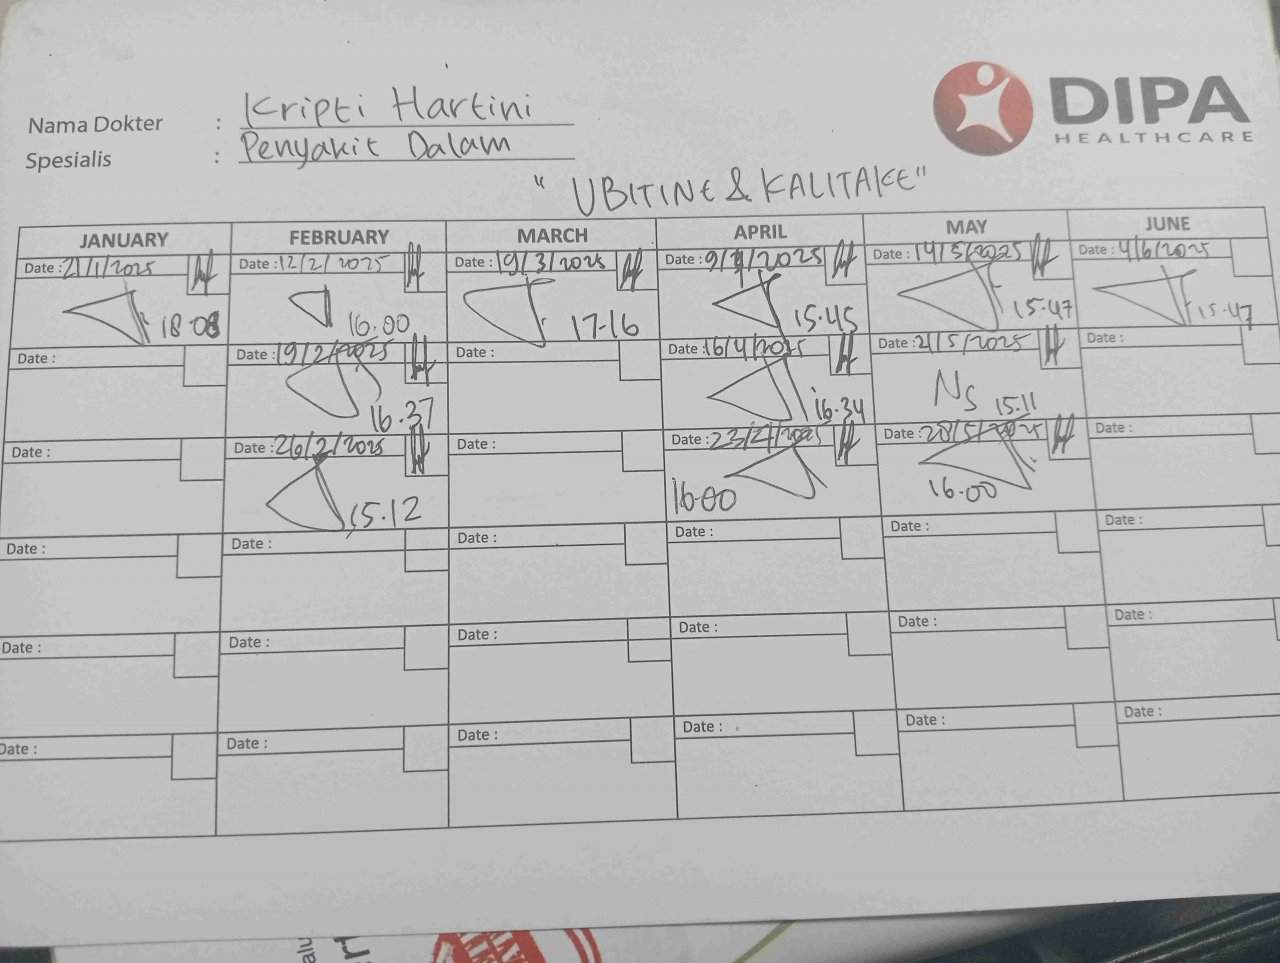 Nama Dokter : Kripti Hartini
Spesialis : Penyakit Dalam
DIPA
HEALTHCARE
" UBITINE & KALITAKE"
JANUARY FEBRUARY MARCH APRIL MAY JUNE
Date : 21/1/2025 Date : 12/2/2025 Date : 19/3/2025 Date : 9/4/2025 Date : 14/5/2025 Date : 4/6/2025
18.08 16.00 17-16 15.45 15.47 15.47
Date : Date : 19/2/2025 Date : Date : 16/4/2025 Date : 21/5/2025 Date :
16.37 16.34 Ns 15.11
Date : Date : 26/2/2025 Date : Date : 23/4/2025 Date : 28/5/2025 Date :
15.12 16.00 16.00
Date : Date : Date : Date : Date : Date :
Date : Date : Date : Date : Date : Date :
Date : Date : Date : Date : Date : Date :